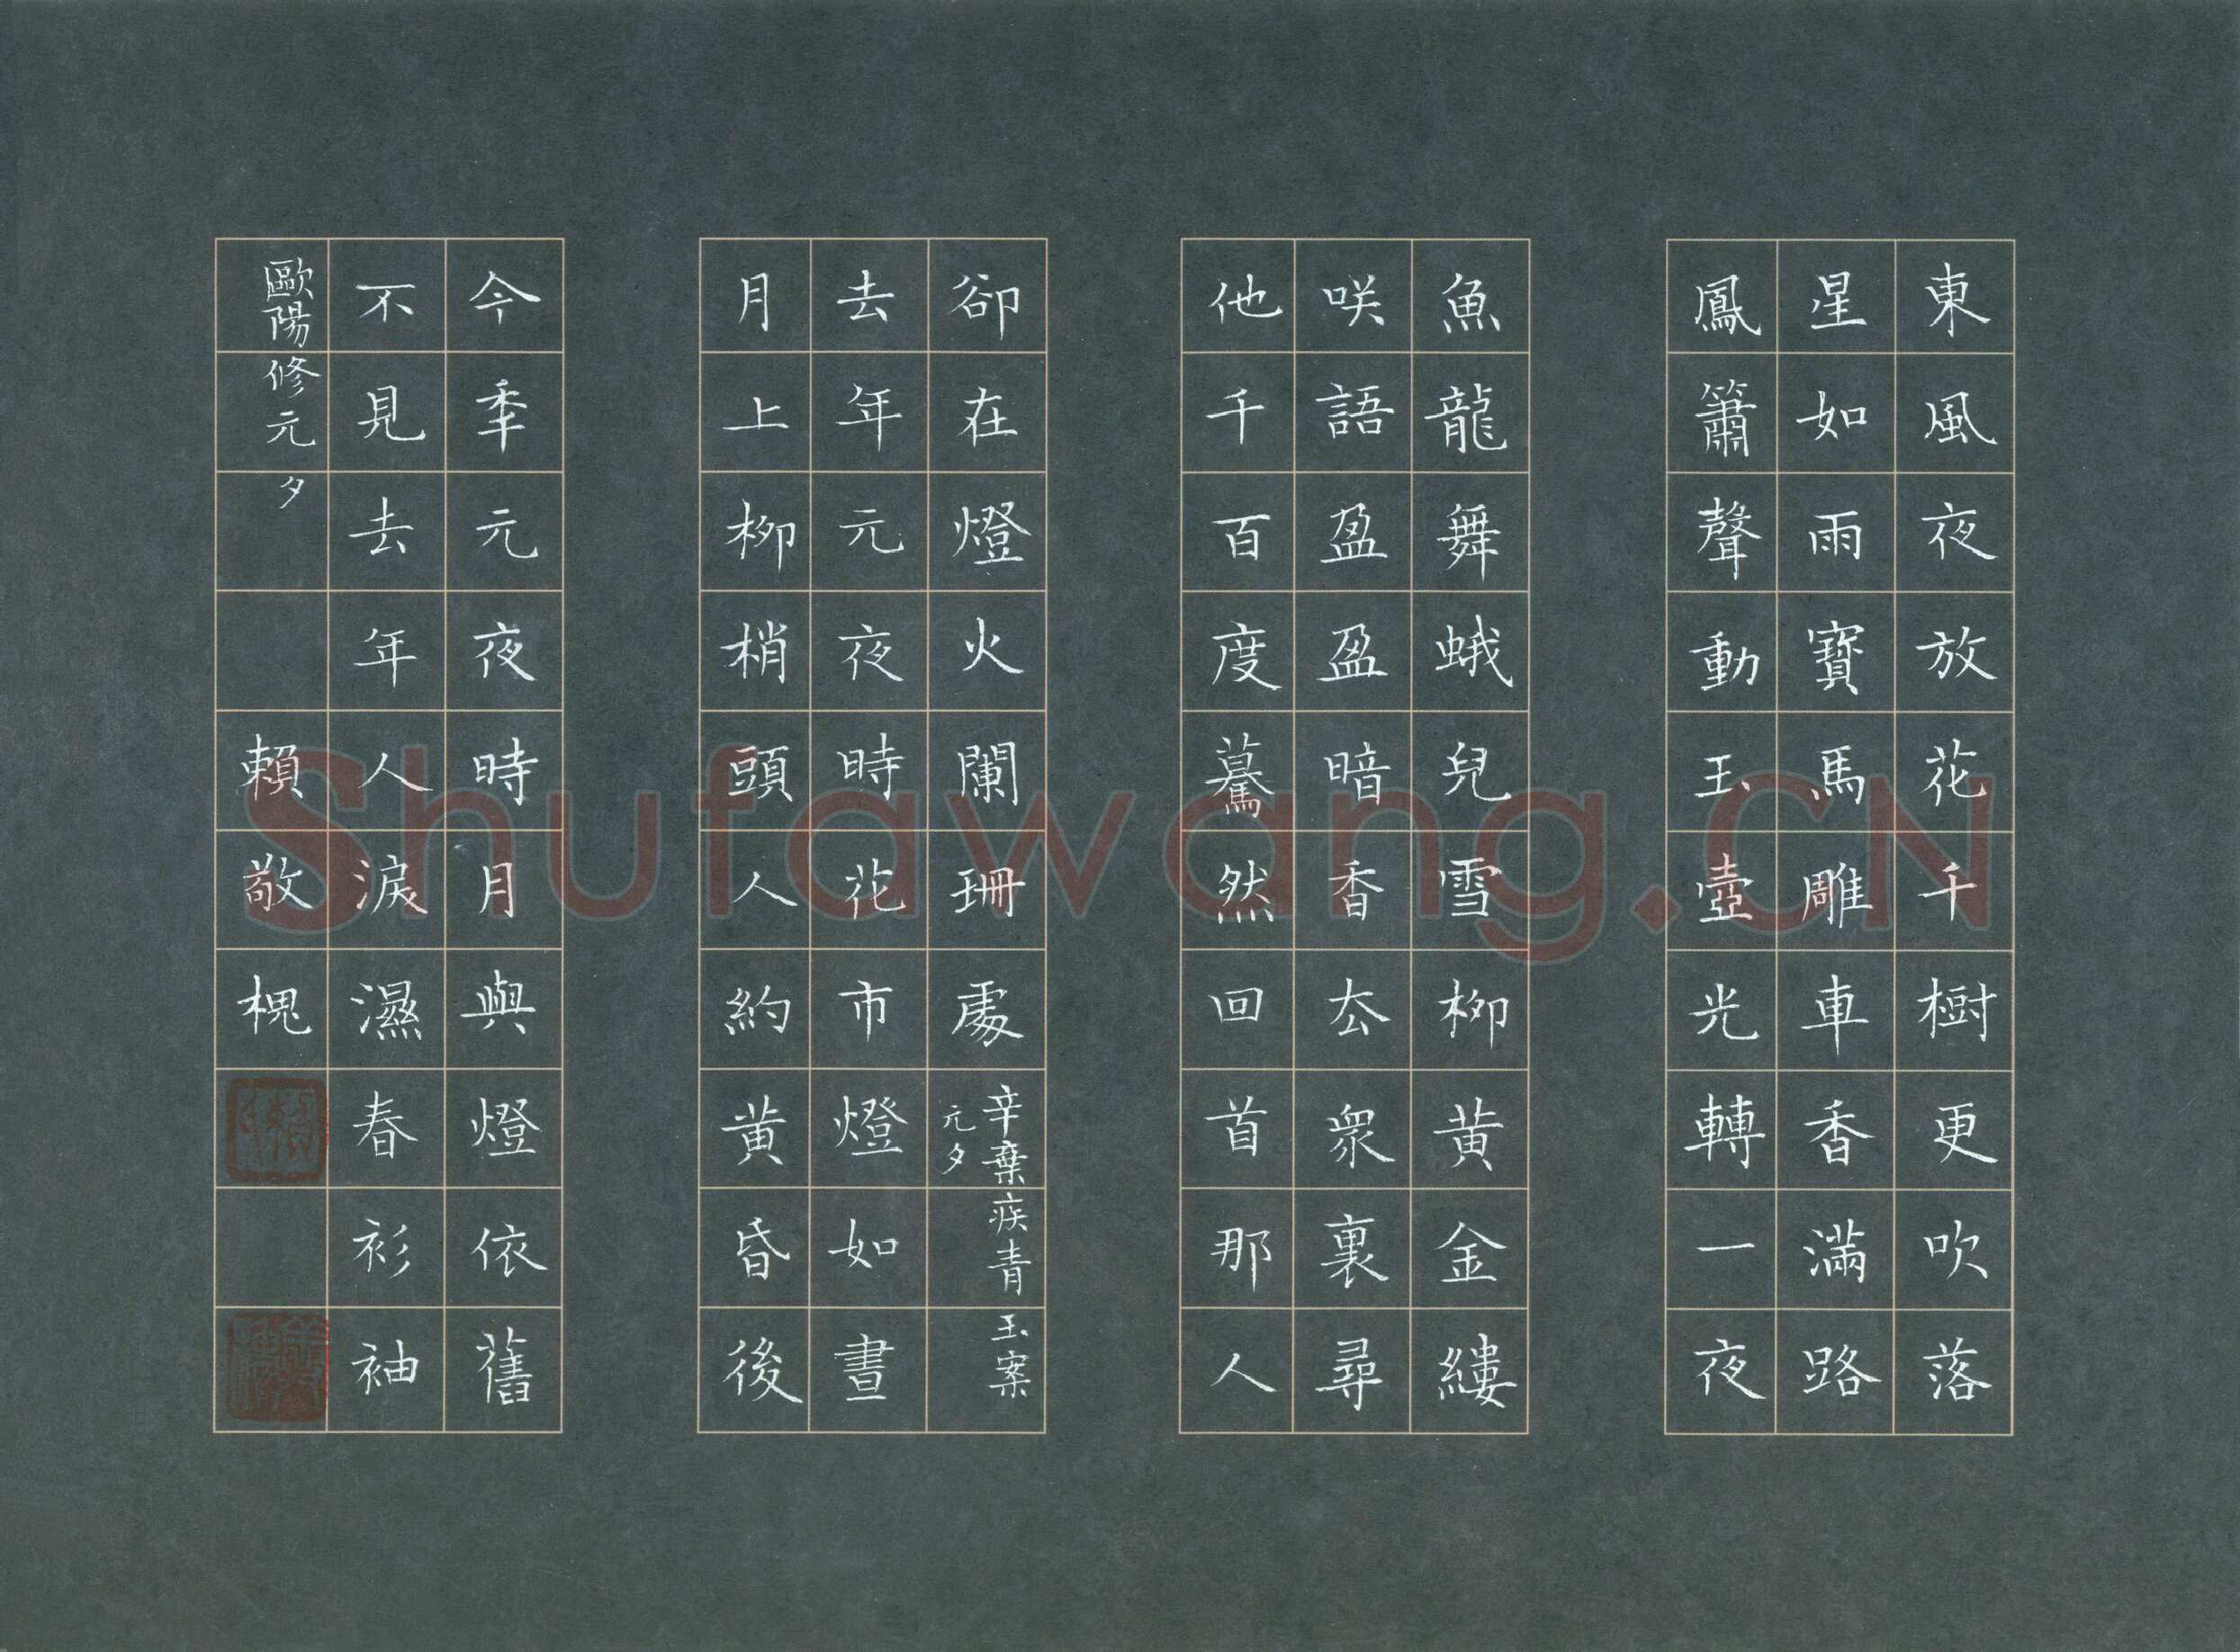 東風夜放花千樹更吹落
星如雨寶馬雕車香滿路
鳳簫聲動玉壺光轉一夜
魚龍舞蛾兒雪柳黄金縷
咲語盈盈暗香去衆裏尋
他千百度驀然回首那人
卻在燈火闌珊處
辛棄疾青玉案
元夕
去年元夜時花市燈如晝
月上柳梢頭人約黄昏後
今秊元夜時月與燈依舊
不見去年人淚濕春衫袖
歐陽修元夕
賴敬槐
Shufawang.CN